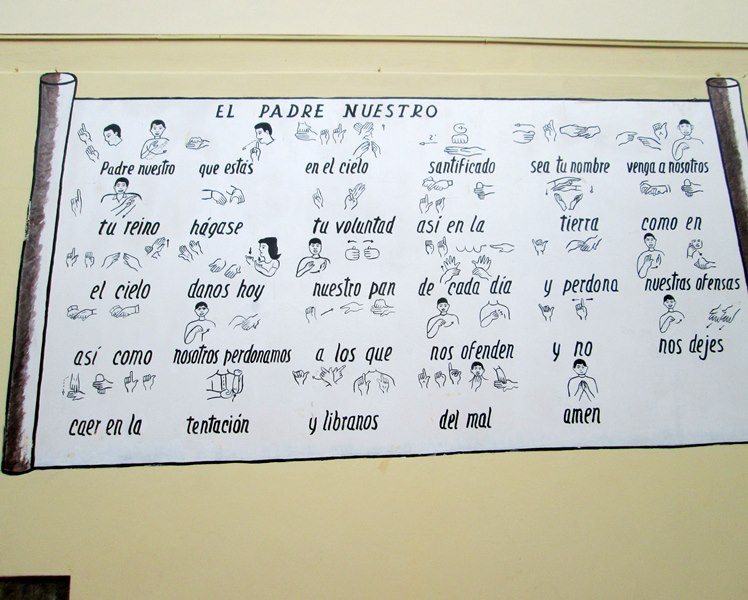 EL PADRE NUESTRO
Padre nuestro que estás en el cielo santificado sea tu nombre venga a nosotros
tu reino hágase tu voluntad así en la tierra como en
el cielo danos hoy nuestro pan de cada día y perdona nuestras ofensas
así como nosotros perdonamos a los que nos ofenden y no nos dejes
caer en la tentación y libranos del mal amen